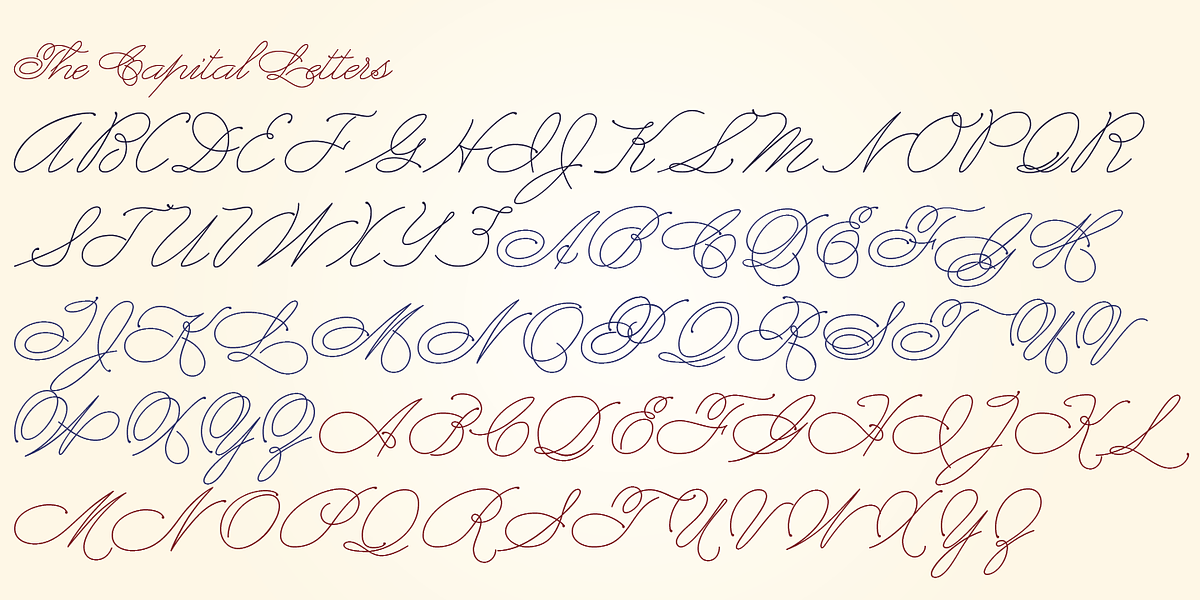 The Capital Letters
ABCDEFGHIJKLMNOPQR
STUVWXYZABCDEFGH
IJKLMNOPQRSTUV
WXYZABCDEFGHIJKL
MNOPQRSTUVWXYZ